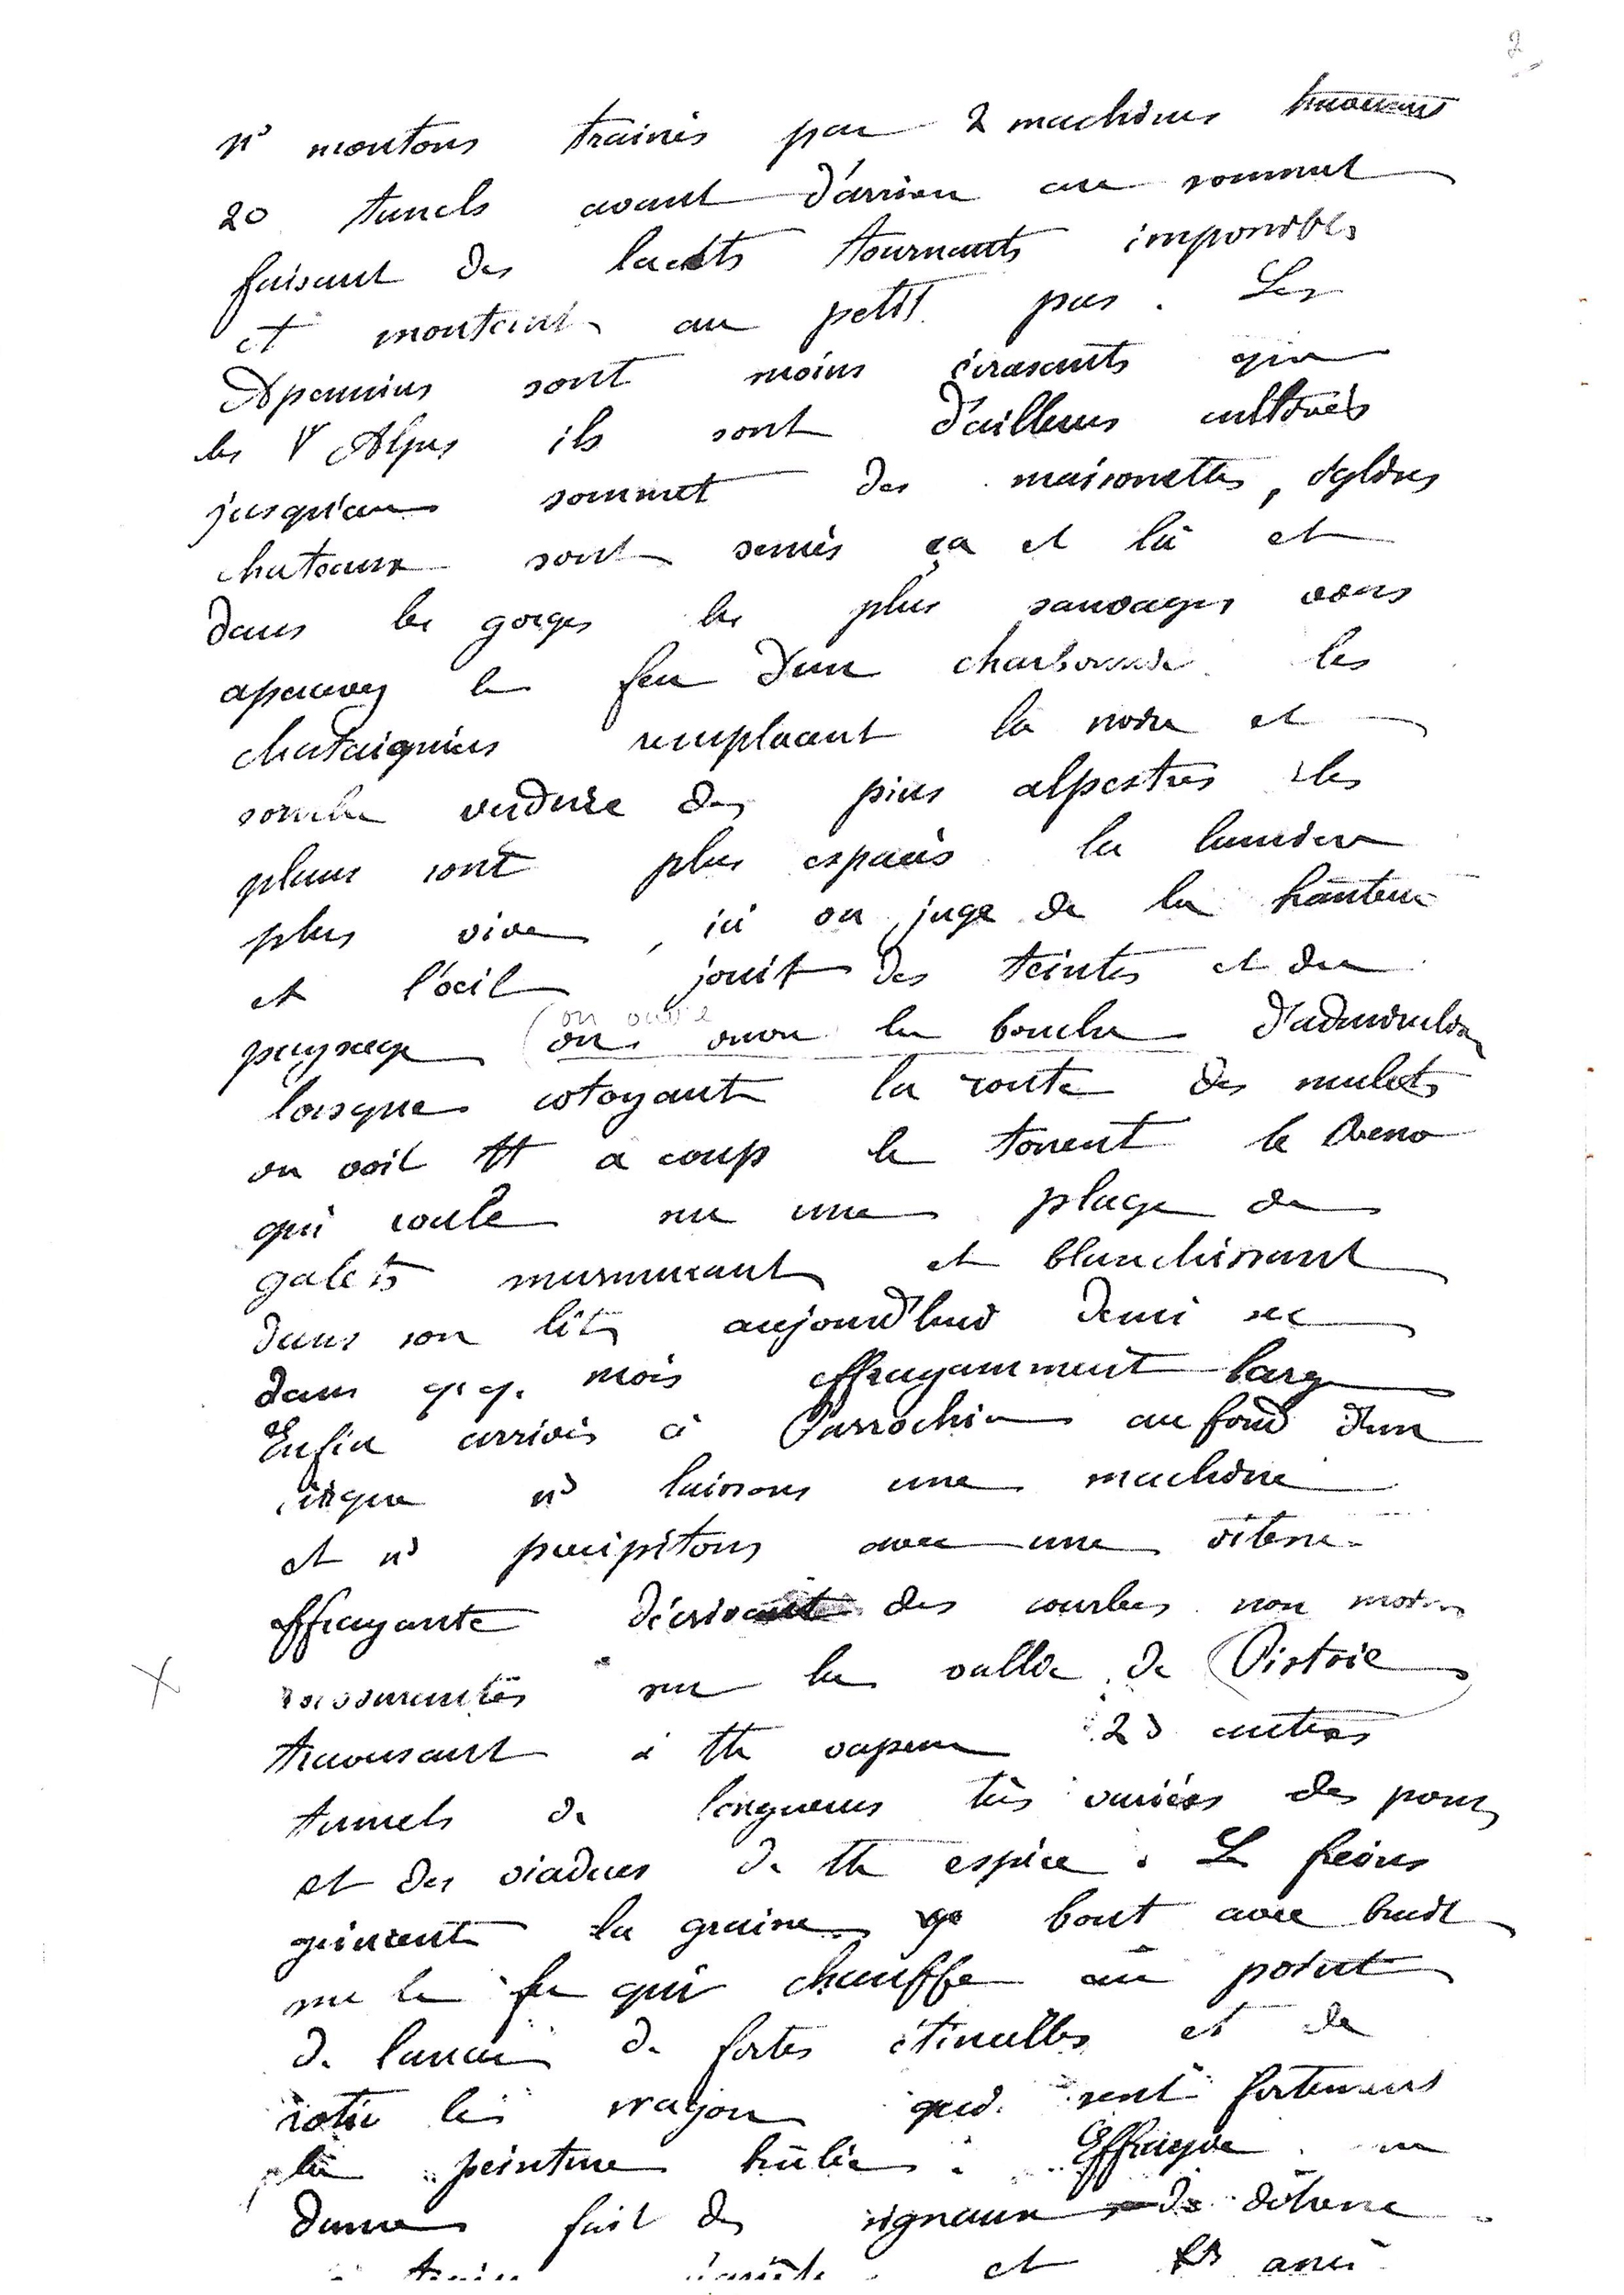 2
ns montons trainés par 2 machines traversant
20 tunels avant d'arriver au sommet
faisant des lacets tournants impossibles
et montant au petit pas. Les
Apennins sont moins écrasants que
les Alpes ils sont d'ailleurs cultivés
jusqu'au sommet des maisonettes, églises
chateaux sont semés ça et là et
dans les gorges les plus sauvages vous
apercevez le feu d'un charbonnier les
chataigniers remplacent la noire et
sombre verdure des pins alpestres les
plans sont plus espacés la lumière
plus vive, ici on juge de la hauteur
et l'œil jouit des teintes et du
on ouvre
paysage (on ouvre la bouche d'admiration
lorsque cotoyant la route des mulets
on voit tt a coup le torrent le Reno
qui roule sur une plage de
galets murmurant et blanchissant
dans son lit aujourd'hui demi sec
dans qq. mois effrayamment large
Enfin arrivés à Parrochia au fond d'un
cirque ns laissons une machine
et ns précipitons avec une vitesse
effrayante décrivant des courbes non moins
sur la vallée de Pistoie
traversant à tte vapeur 23 autres
tunnels de longueurs très variées des ponts
et des viaducs de tte espèce. Le freins
grincent la graisse bout avec bruit
sur le fer qui chauffe au point
de lancer de fortes étincelles et de
rotir les wagon qui sent fortement
la peinture brûlée. Effrayée une
dame fait des signaux de détresse
le train s'arrête et